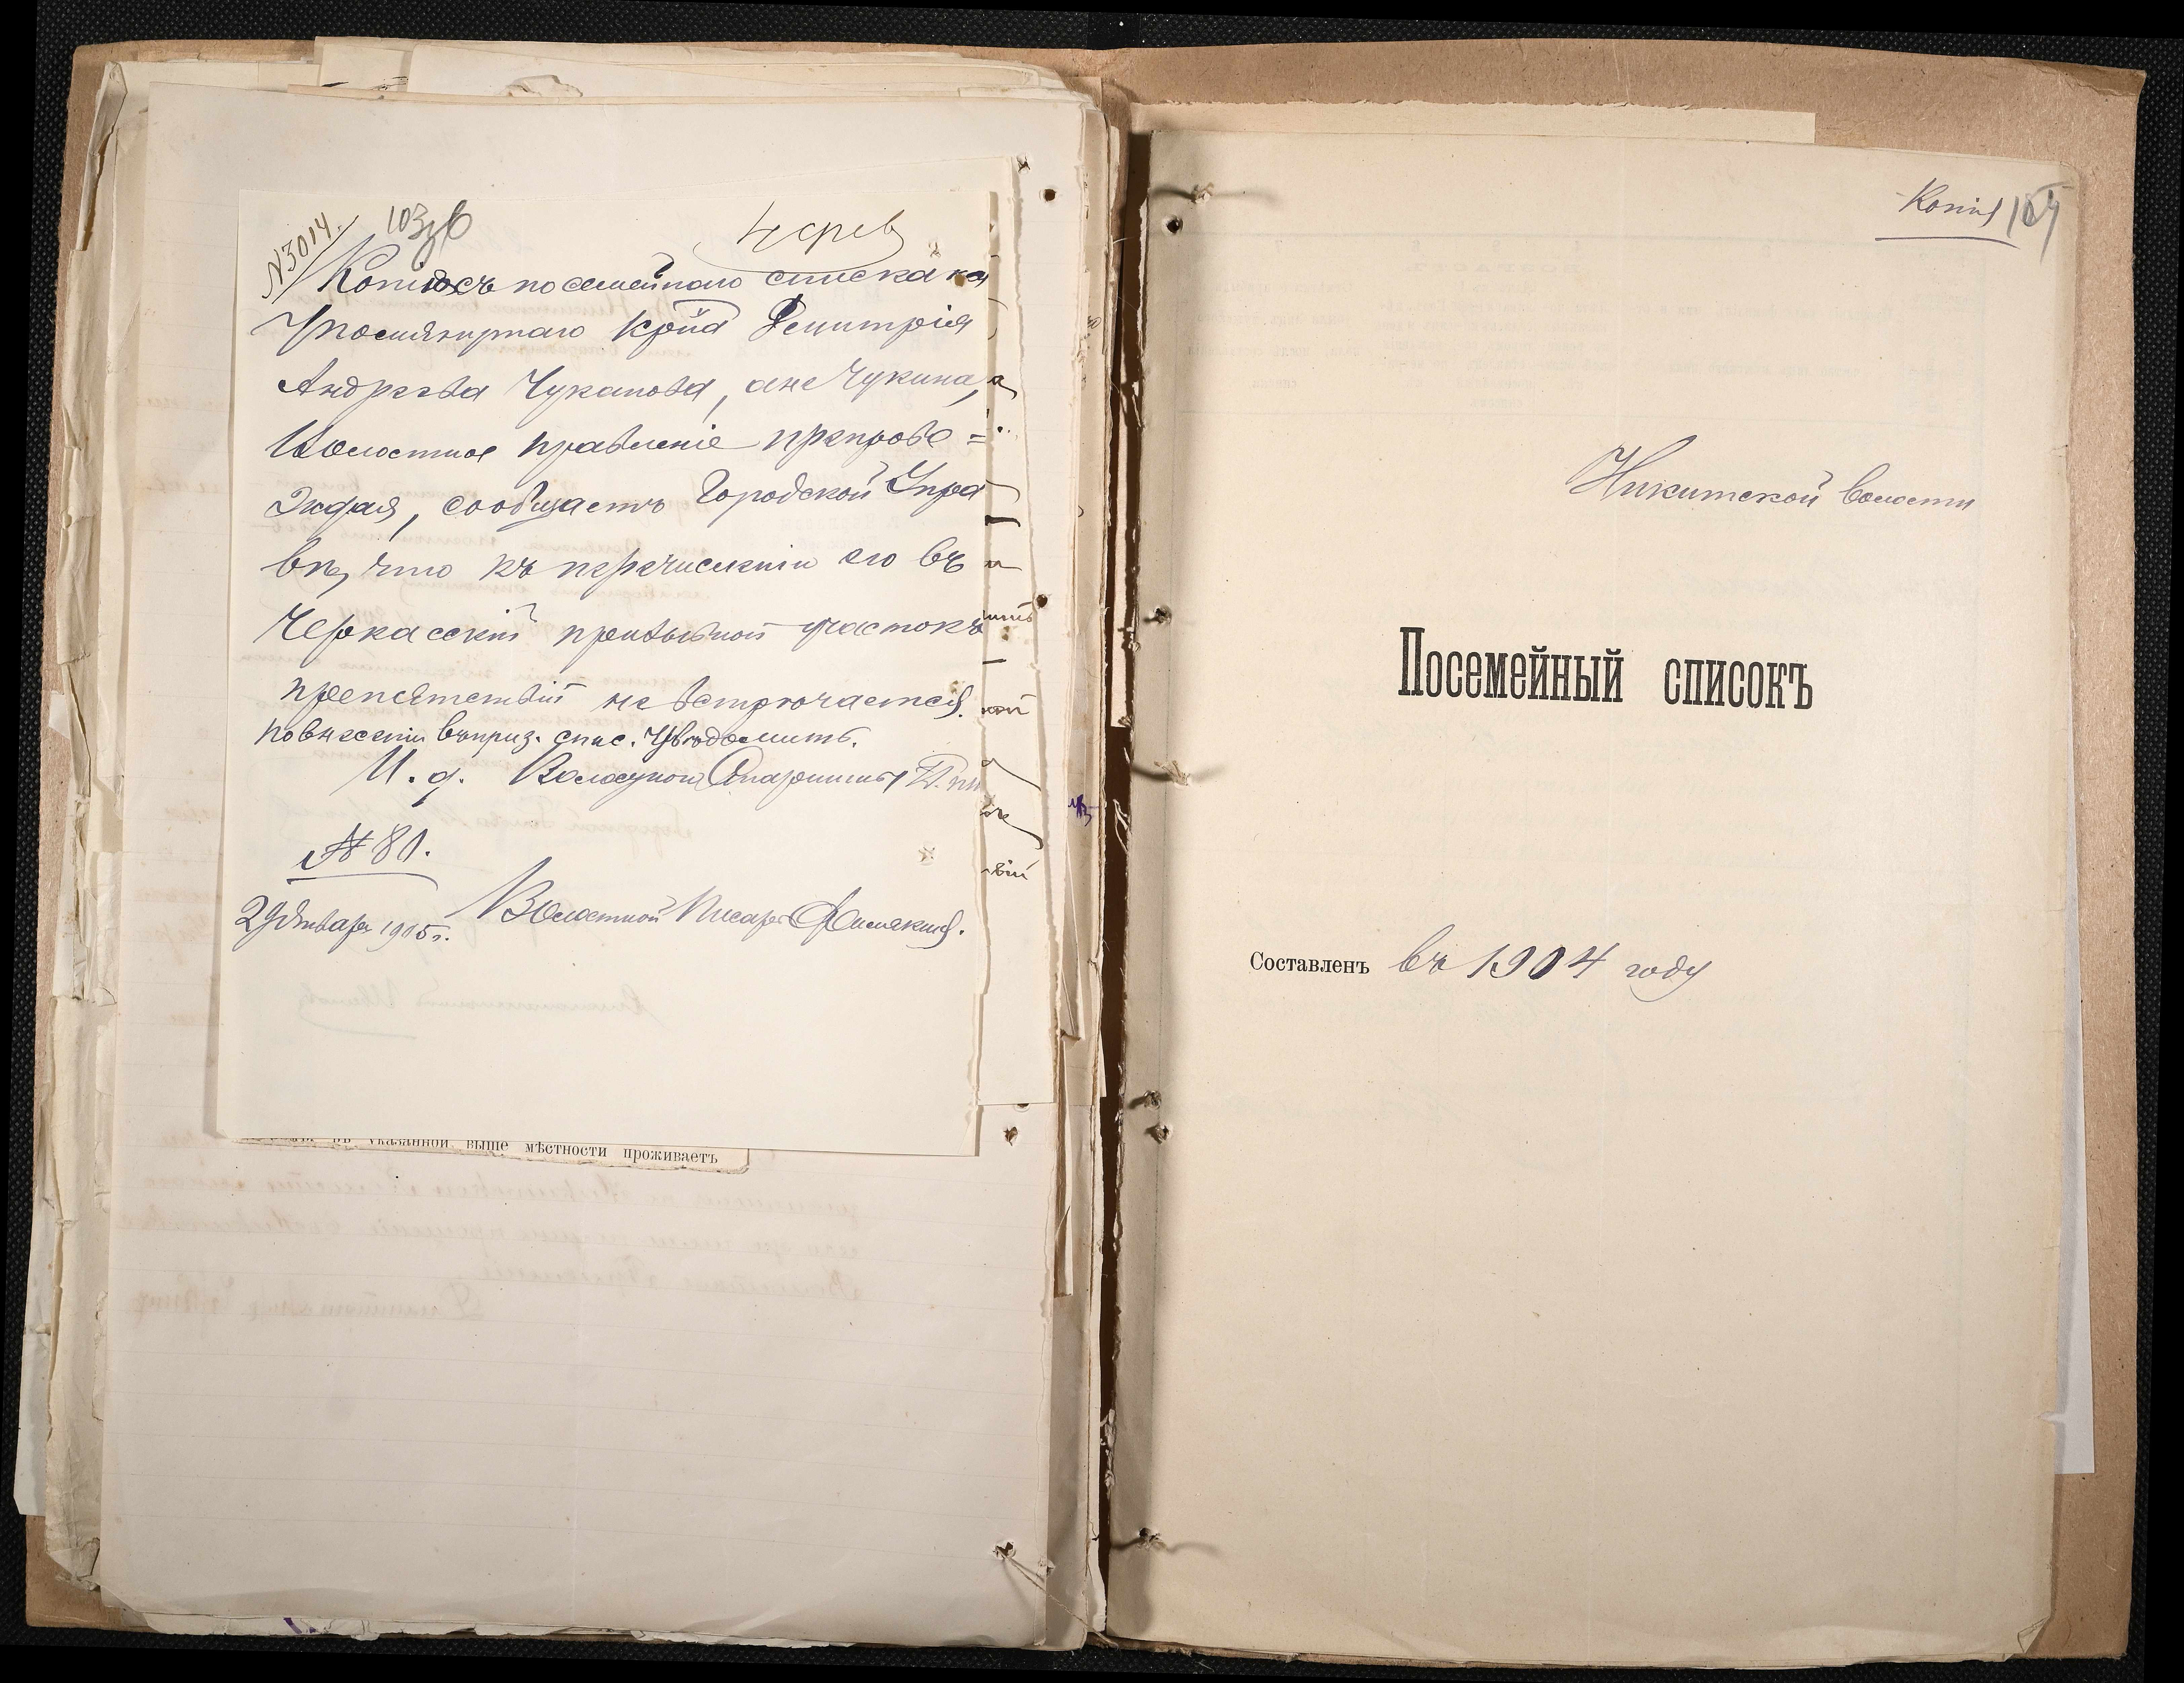 N 3014.
103зв
4 фев
Копію съ посемейнаго списка на
упомянутаго кр-на Дмитрія
Андреева Чуканова, а не Чукина,
Волостное правленіе препрово=
ждая, сообщаетъ Городской Упра
вѣ, что къ перечисленію его въ
Черкасскій призывной участокъ
препятствій не встрѣчается.
По внесеніи въ приз. спис. увѣдомить.
И. д. Волостного Старшины
№ 80.
29 Января 1905 г.
Волостной Писарь
указанной выше мѣстности проживаетъ
Копія
Никитской волости
Посемейный списокъ
Составленъ въ 1904 году